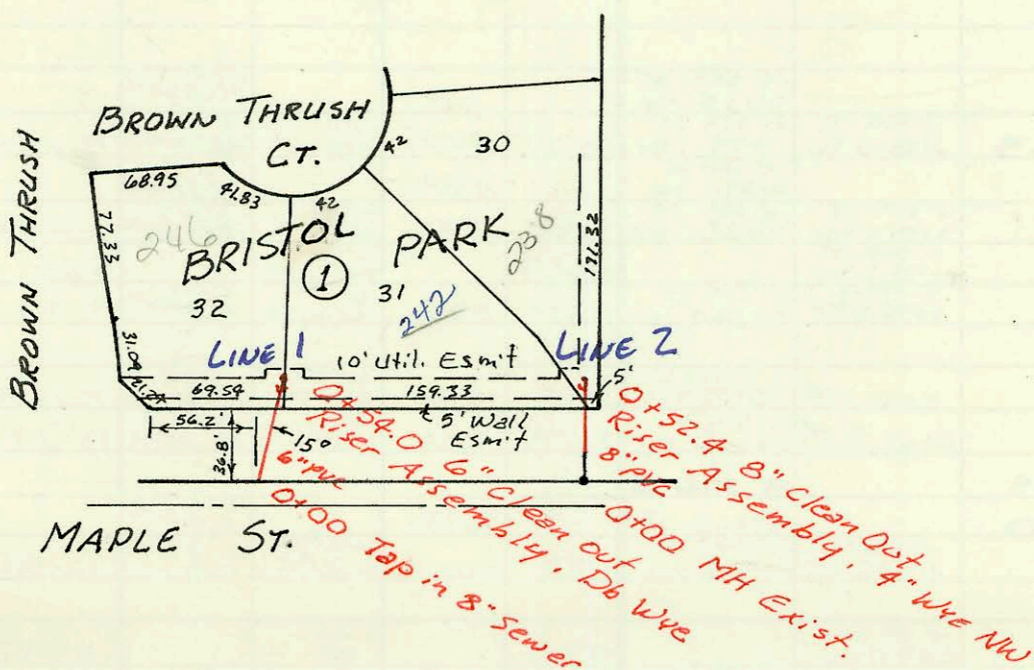 BROWN THRUSH
CT.
BROWN THRUSH
68.95
41.83
42
42
30
77.33
246
BRISTOL PARK
1
238
171.32
32
31
242
31.09
21.24
LINE 1
10' Util. Esm't
LINE 2
69.54
159.33
5'
56.2'
5' Wall
Esm't
36.8
15°
6" PVC
0+54.0 6" Clean out
Riser Assembly, Db Wye
0+00 Tap in 8" Sewer
8" PVC
0+52.4 8" Clean Out
Riser Assembly, 4" Wye NW
0+00 MH Exist.
MAPLE ST.